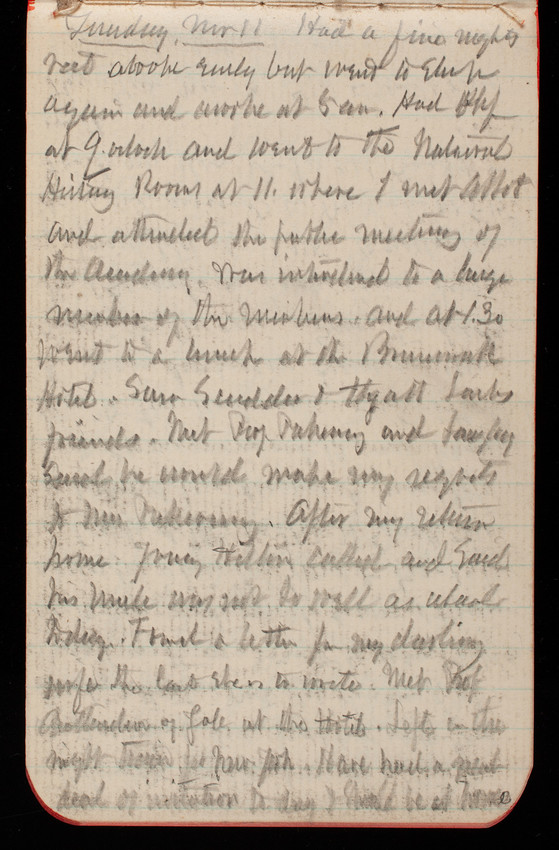 Tuesday, Nov 11 Had a fine nights
rest awoke early but went to sleep
again and awoke at 8 am. Had Bkf
at 9 oclock and went to the National
History Rooms at 11. where I met Abbot
and attended the public meeting of
the Academy. Was introduced to a large
number of the members. and at 1.30
went to a lunch at the Brunswick
Hotel. Saw Scudder & Hyatt
friends. Met Prof and Langley
Said he would make my regrets
to Mrs Pickering. After my return
home Young called and said
his uncle was not so well as usual
today. Found a letter from my darling
wife the last she is to write. Met Prof
of Yale at the Hotel. Left in the
night train for New York. Have had a great
deal of invitation to day I would be at home